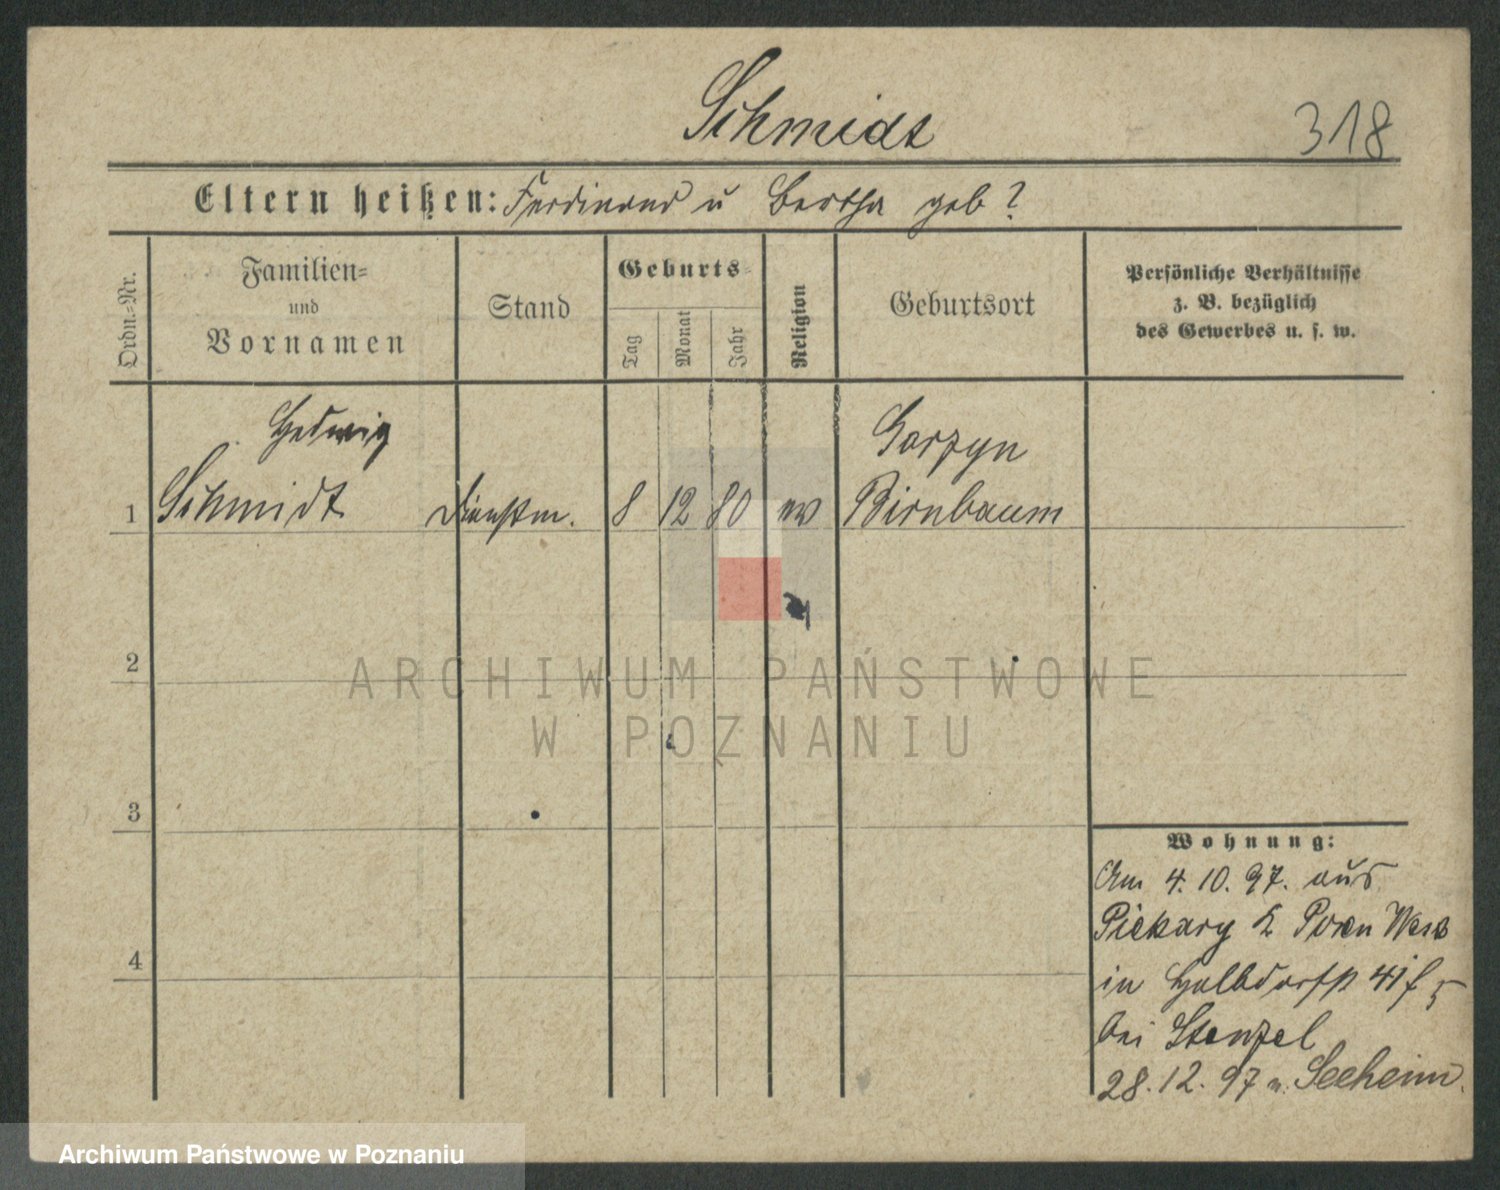 Schmidt
318
Eltern heißen: Ferdinand u Bertha geb ?
Ordn.-Nr.
Familien-
und
Vornamen
Stand
Geburts-
Tag
Monat
Jahr
Religion
Geburtsort
Persönliche Verhältnisse
z. B. bezüglich
des Gewerbes u. s. w.
Hedwig
Gorzyn
1 Schmidt Dienstm. 8 12 80 ev Birnbaum
2
3
4
Wohnung:
Am 4. 10. 97. aus
Piekary Posen West
in Halbdorfst
bei Stenzel
28. 12. 97 n. Seeheim
ARCHIWUM PAŃSTWOWE
W POZNANIU
Archiwum Państwowe w Poznaniu